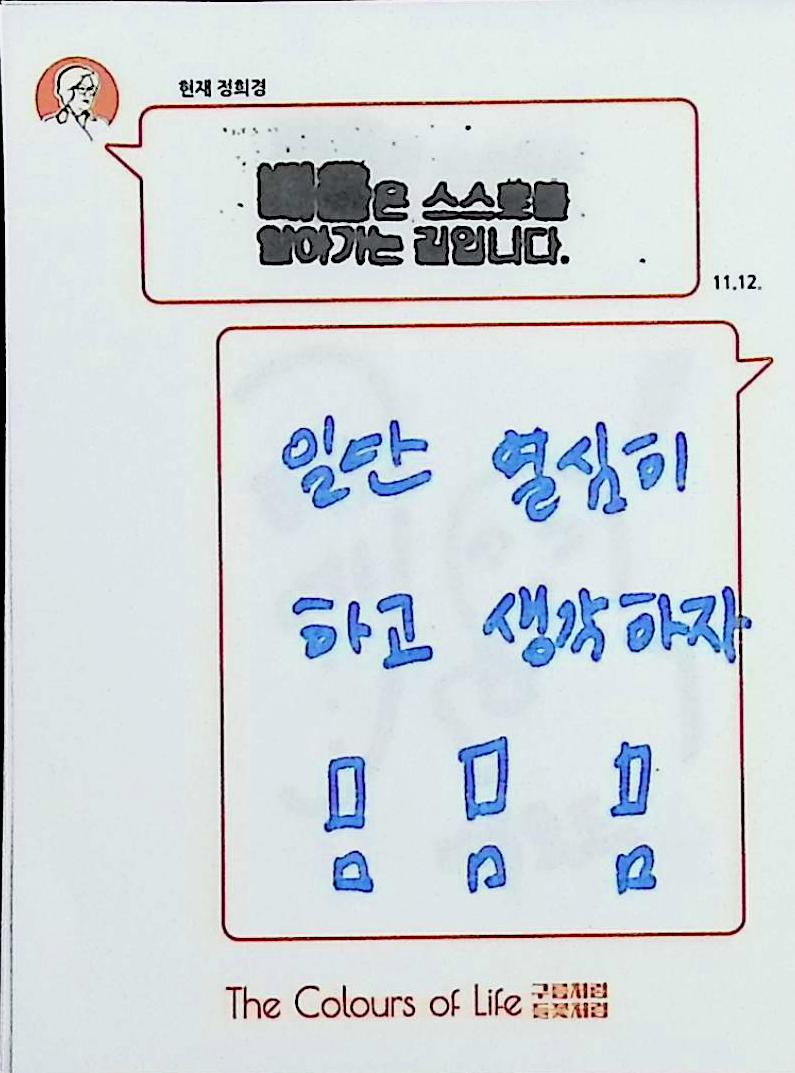 현재 정희경
배움은 스스로를
알아가는 길입니다.
11.12.
일단 열심히
하고 생각하자
!!!
The Colours of Life 구름처럼
들꽃처럼